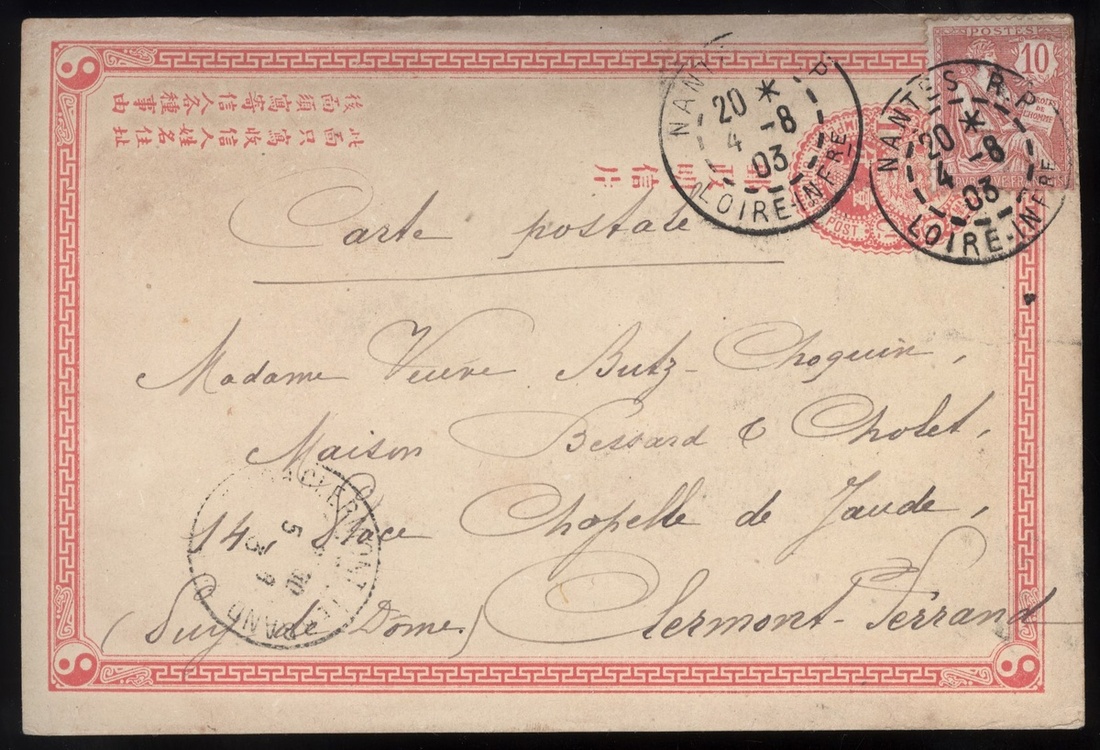 POSTES
10
DROITS
DE
L'HOMME
NANTES R.P.
20 *
4 -8
03
LOIRE-INFRE
NANT
P.
20 *
4 -8
03
LOIRE-INFRE
POST
郵政明信片
此面只寫收信人姓名住址
後面須寫寄信人各種事由
Carte postale
Madame Veuve Butz-Choquin,
Maison Bessard & Cholet,
14 Place Chapelle de Jaude,
(Puy de Dôme) Clermont-Ferrand
CLERMONT-FERRAND